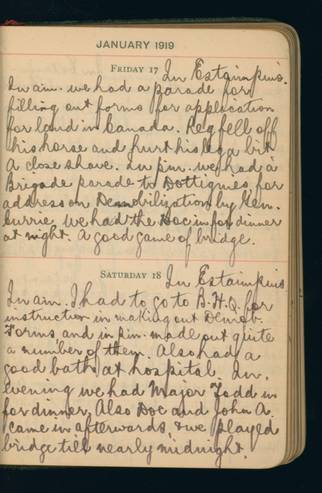 JANUARY 1919
FRIDAY 17 In Estaimpuis.
In am. we had a parade for
filling out forms for application
for land in Canada. Reg fell off
his horse and hurt his leg a bit
A close shave. In p.m. we had a
Brigade parade to Dottignies for
address on Demobilization by Gen.
Currie, we had the Doc in for dinner
at night. A good game of bridge.
SATURDAY 18 In Estaimpuis
In am. I had to go to B.H.Q. for
instruction in making out Demob.
Forms and in p.m. made out quite
a number of them. Also had a
good bath at hospital. In
evening we had Major Todd in
for dinner Also Doc and John A.
came in afterwards & we played
bridge till nearly midnight.